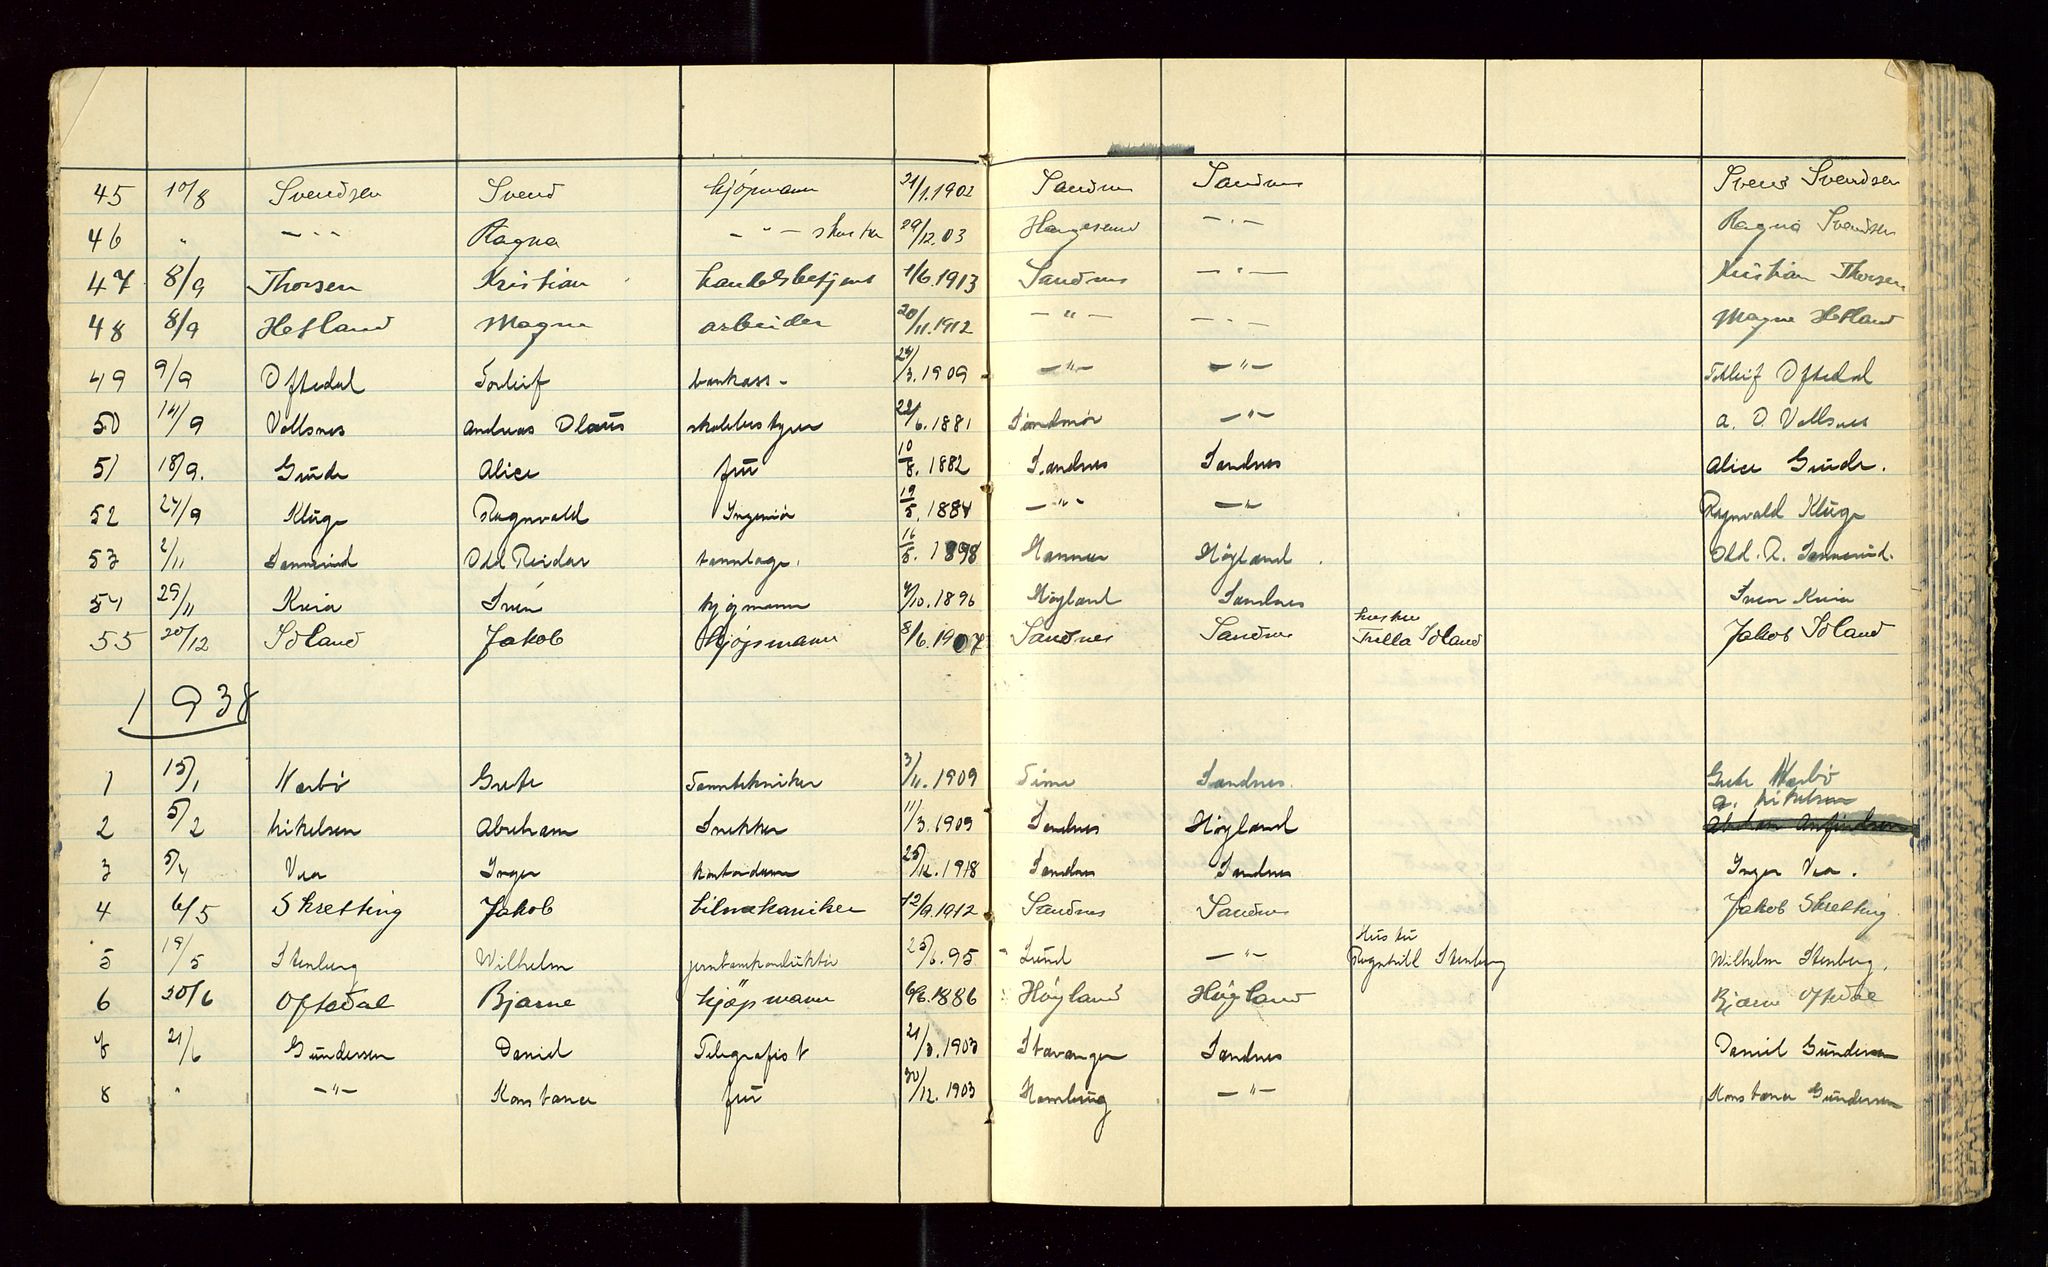 45 10/8 Svendsen Svend kjøpmann 21/1.1902 Sandnes Sandnes Svend Svendsen
46 " — " — Ragna — " — 29/12.03 Haugesund — " — Ragna Svendsen
47 8/9 Thorsen Kristian handelsbetjent 1/6.1913 Sandnes — " — Kristian Thorsen
48 8/9 Hetland Magne arbeider 20/11.1912 — " — — " — Magne Hetland
49 9/9 Oftedal Torleif bankass. 24/3.1909 — " — — " — Torleif Oftedal
50 14/9 Vollsnes Andreas Olaus skolebestyrer 22/6.1881 Søndmør — " — A. O. Vollsnes
51 18/9. Gude Alice frü 10/8.1882 Sandnes Sandnes Alice Gude.
52 27/9 Kluge Ragnvald Ingeniør 19/5.1884 — " — — " — Ragnvald Kluge
53 2/11 Odd Reidar tannlæge. 16/5.1898 Høyland. Odd. R.
54 29/11 Kvia Sven kjøpmann 4/10.1896 Høyland Sandnes Sven Kvia
55 20/12 Idland Jakob kjøpmann 8/6.1907 Sandnes Sandnes hustru Idland Jakob Idland
1938
1 15/1 Nærbø Grete Tanntekniker 3/11.1909 Time Sandnes. Grete Nærbø
2 5/2 Mikelsen Abraham Snekker 11/3.1909 Sandnes Høyland A. Mikelsen
3 5/4 Vea Inger kontordame 25/12.1918 Sandnes Sandnes Inger Vea.
4 6/5 Skretting Jakob bilmekaniker 12/9.1912 Sandnes Sandnes Jakob Skretting
5 19/5 Stenberg Wilhelm jernbanekonduktør 25/6.95 Lund — " — Hustru Ragnhill Stenberg Wilhelm Stenberg.
6 20/6 Oftedal Bjarne kjøpmann 6/6.1886 Høyland Høyland Bjarne Oftedal
7 21/6 Gundersen Daniel Telegrafist 21/3.1903 Stavanger Sandnes Daniel Gundersen
8 " — " — Konstance frü 30/12.1903 Hamburg — " — Konstance Gundersen